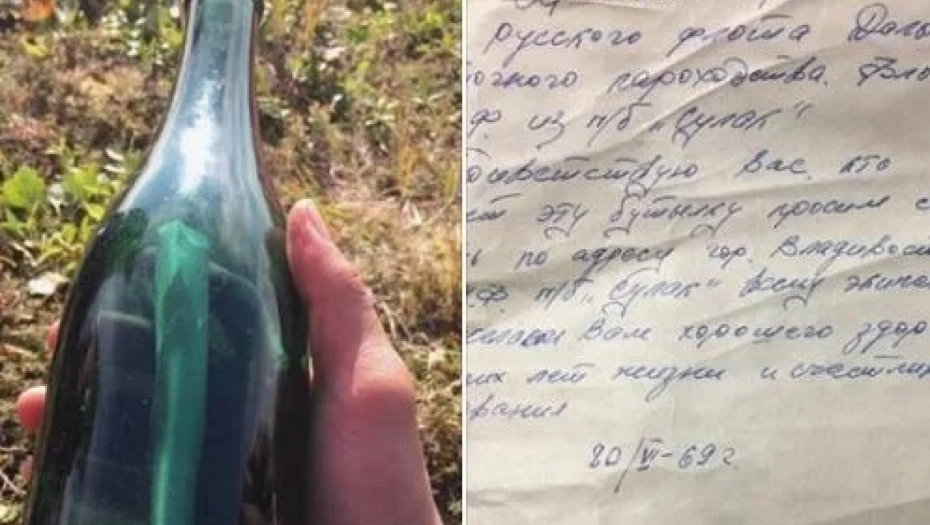 Русского флота Даль
очного пароходства.
ф. из п/б „Сулак"
Вас, кто
ет эту бутылку просим с
ь по адресу гор. Владивост
ф. п/б „Сулак" всему экипа
Вам хорошего здор
их лет жизни и счастлив
вания
20/VI-69 г